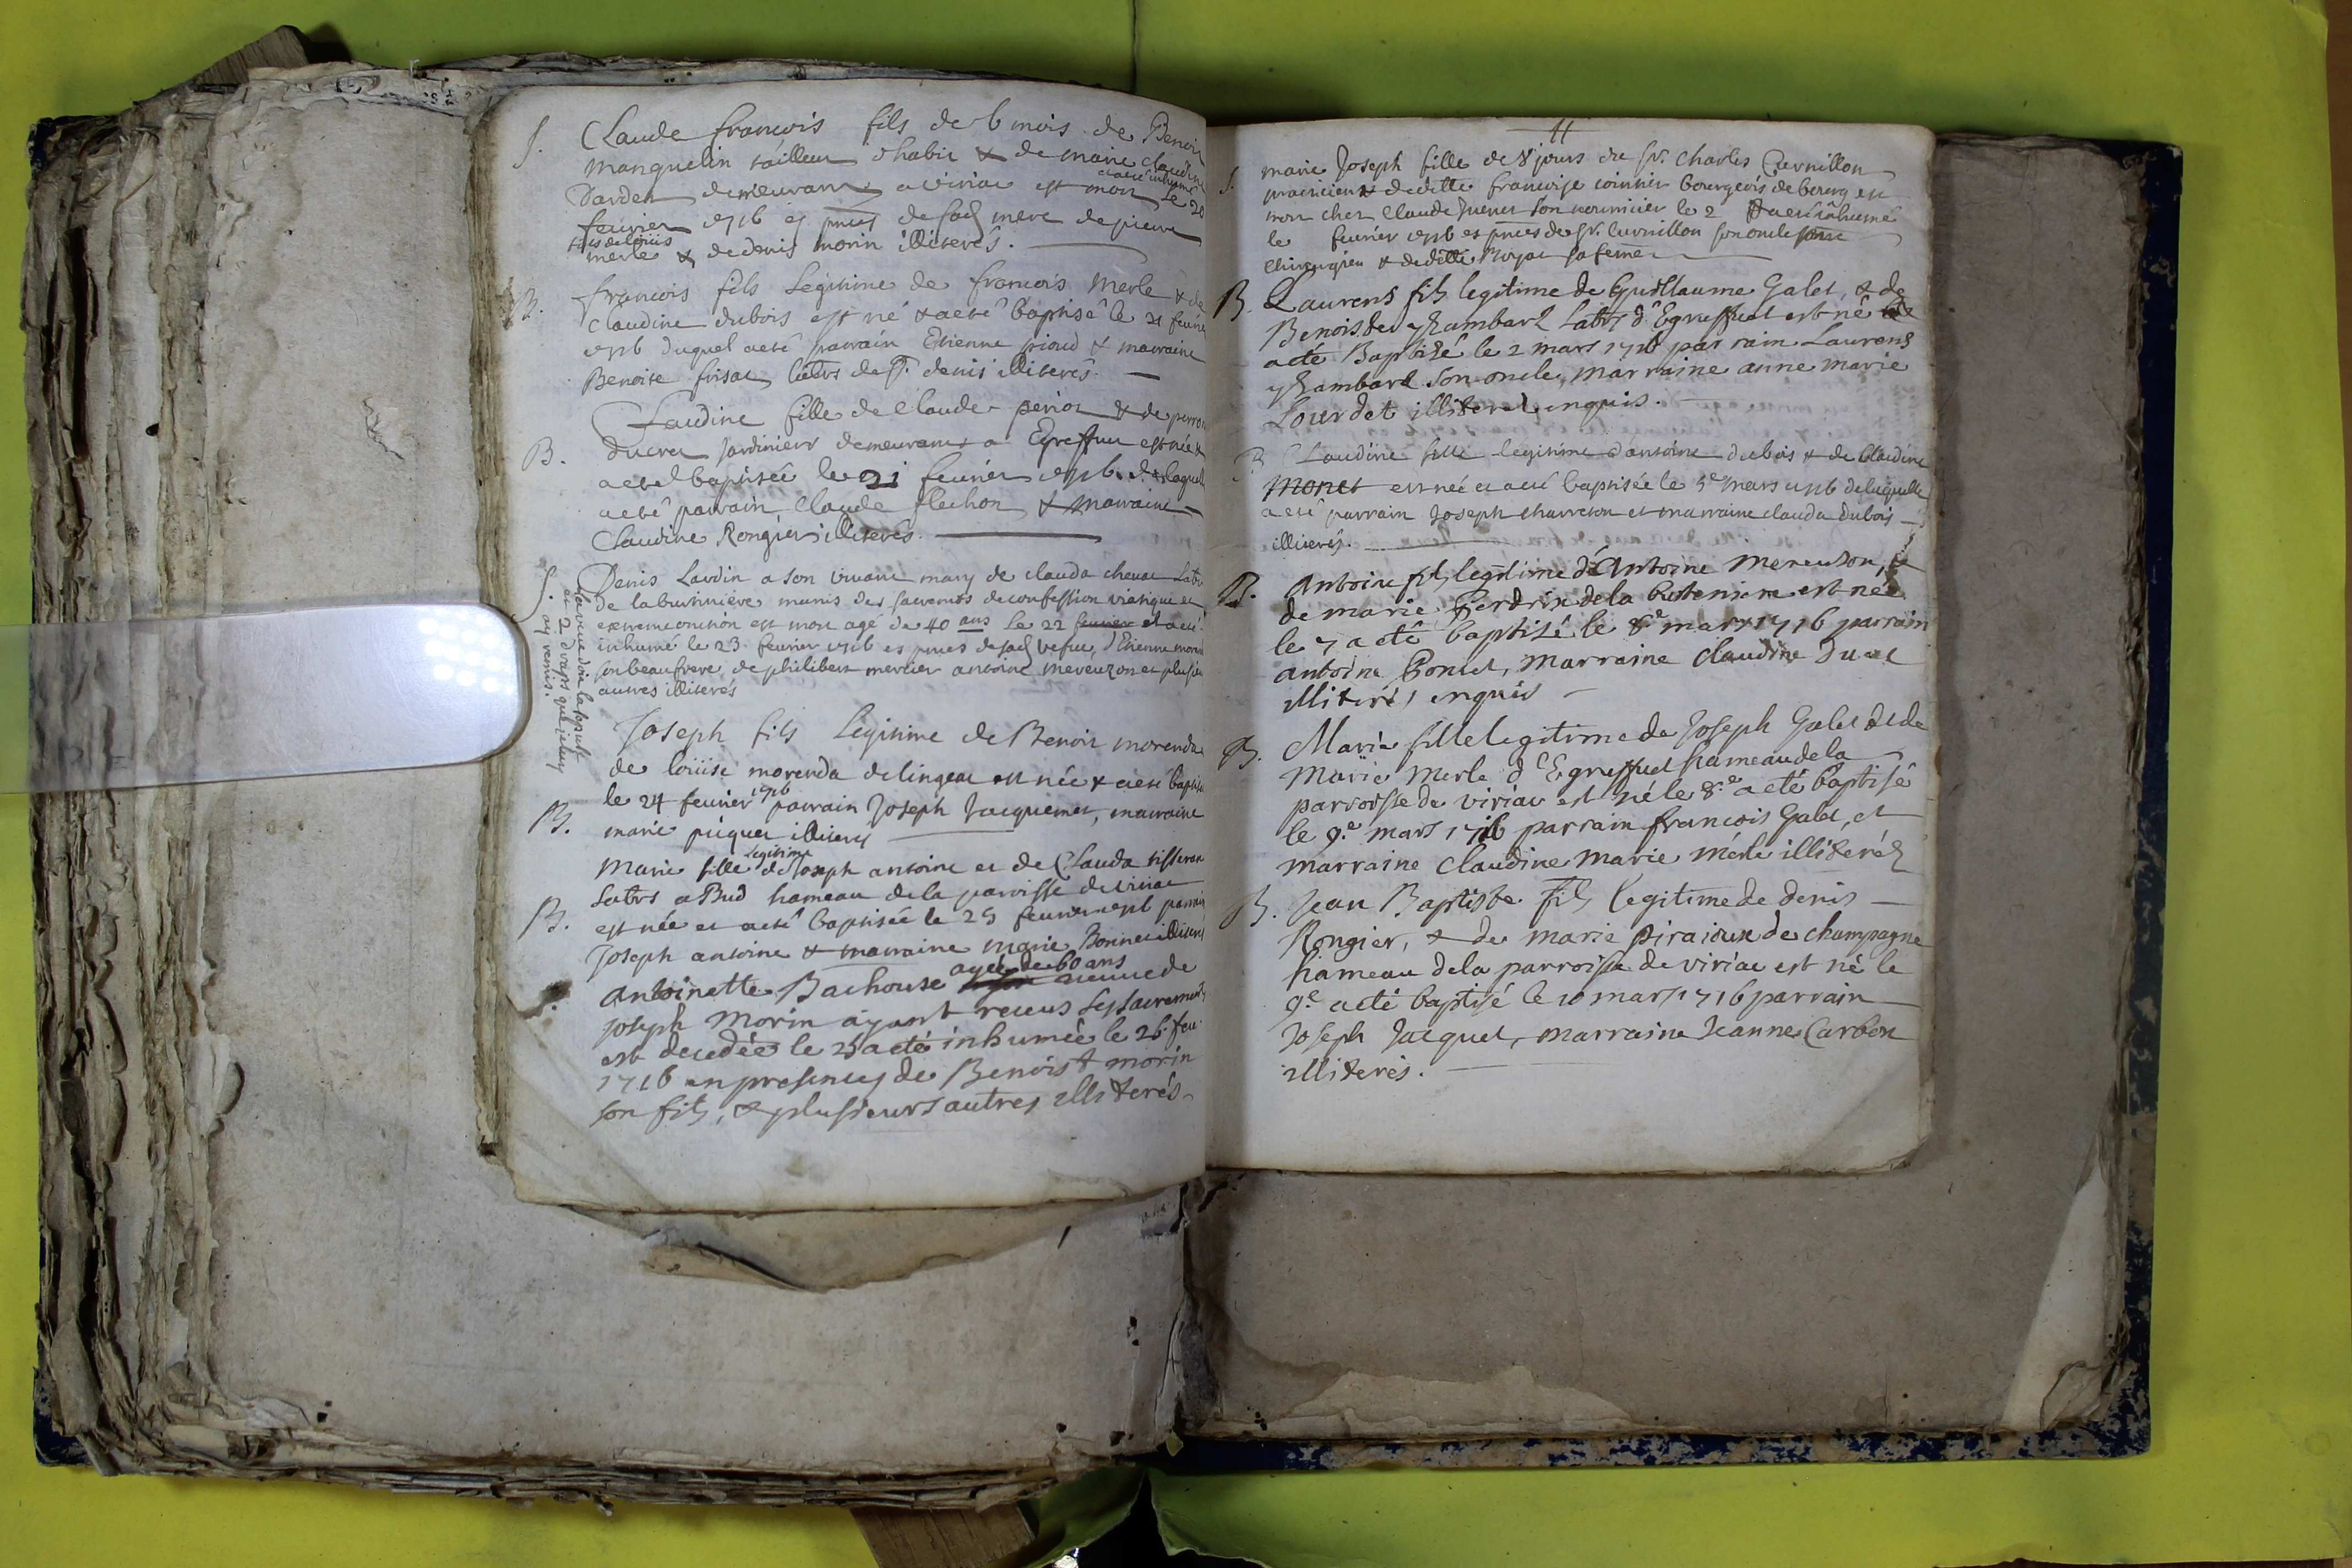 S. Claude francois fils de 6 mois de Benoit
manquelin tailleur d'habit & de marie claudine
Dardet demeurant a viriat est mort le 20
a eté inhumé
fevrier 1716 es pnces de sad. mere de pierre
fils de loüis
merle & de denis morin illiterés.
B. francois fils Legitime de francois Merle & de
Claudine dubois est né & a eté baptisé le 21 fevrier
1716 duquel a eté parrain Etienne pioud & marraine
Benoite frisat labrs de st. denis illiterés
Claudine fille de claude periot & de perron
B. ducret jardiniers demeurant a Egreffeu est née &
a eté baptisée le 21 fevrier 1716 de laquelle
a eté parrain Claude flechon & marraine
Claudine Rongier illiterés.
S. Denis Lardin a son vivant mary de clauda chevat Labr
de la butiniere munis des sacremts de confession viatique et
extremeonction est mort agé de 40 ans le 22 fevrier et a eté
inhumé le 23 fevrier 1716 es pnces de sad vefue, d'Etienne morin
son beaufrere de philibert mercier antoine meveuzon et plusieurs
autres illiterés
La veuve doit la sepult
et 2 draps que je luy
ay remis.
Joseph fils Legitime de Benoit morenda
de loüise morenda de lingeat est née & a eté baptisé
le 24 fevrier 1716 parrain Joseph Jacquemet, marraine
B. marie piquet illiterés
Marie fille Legitime de Joseph antoine et de Clauda tisseran
Labrs a Bud hameau de la paroisse de viriat
B. est née et a eté baptisée le 25 fevrier 1716 parrain
Joseph antoine & marraine marie Bonnet illiterés
agée de 60 ans
antoinette Bachouse veuve de
Joseph Morin ayant receus les sacrements
est decedée le 25 a eté inhumée le 26 fev.
1716 en presences de Benoist morin
son fils, & plusieurs autres illiterés
11
S. marie Joseph fille de 8 jours du sr. Charles Curnillon
praticien & de ditte francoise coinnier bourgeois de bourg est
mort chez claude Juenet son nourricier le 2 & a eté inhumé
le fevrier 1716 es pnces de sr. Curnillon son oncle
Chirurgien & de ditte Royat sa femme
B. Laurens fils legitime de Guillaume Galet, & de
Benoiste Chambard Labrs d'Egreffuel est né
a eté Baptisé le 2 mars 1716 parrain Laurens
Chambard son oncle, marraine anne marie
Lourdet illiteré enquis.
B. Claudine fille legitime d'antoine dubois & de Claudine
Monet est née et a eté baptisée le 5e mars 1716 de laquelle
a eté parrain Joseph charreton et marraine clauda dubois
illiterés.
B. Antoine fils legitime d'Antoine Meneuson, &
de marie Perdrix de la butiniere est née
le 7 a eté baptisé le 8e mars 1716 parrain
antoine Ponset, marraine claudine
illiteré, enquis
B. Marie fille legitime de Joseph Galet & de
Marie Merle d'Egreffuel hameau de la
parroisse de viriat est né le 8e a eté baptisé
le 9e mars 1716 parrain francois Galet, et
marraine claudine marie merle illiterés
B. Jean Baptiste fils legitime de denis
Rongier, & de marie piraioux de champagne
hameau de la parroisse de viriat est né le
9e a eté baptisé le 10 mars 1716 parrain
Joseph Jacquet, marraine Jeanne Carbon
illiterés.